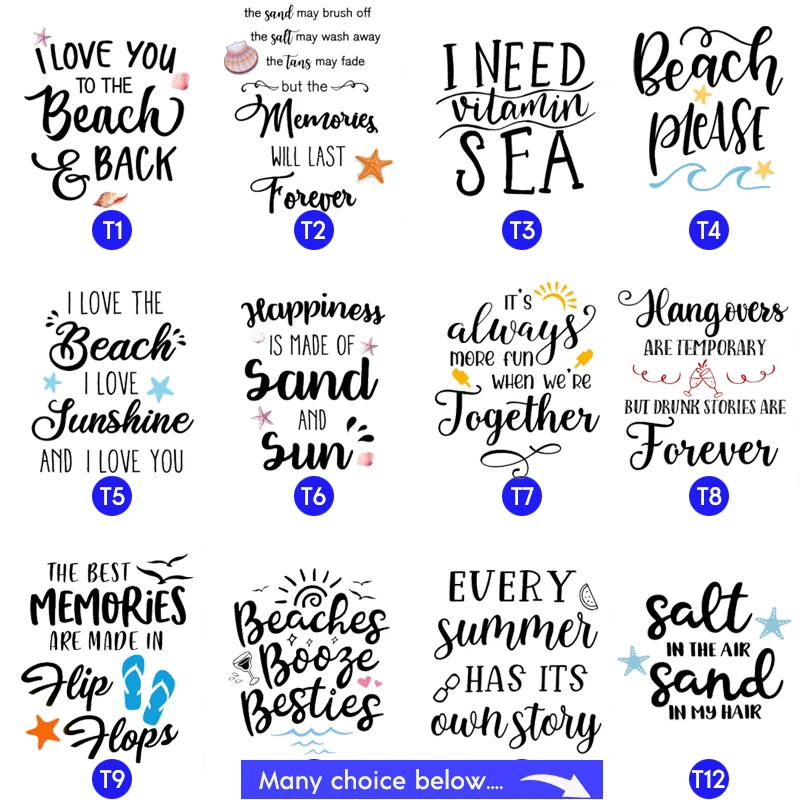 I LOVE YOU
TO THE
Beach
& BACK
T1
the sand may brush off
the salt may wash away
the tans may fade
but the
Memories
WILL LAST
Forever
T2
I NEED
vitamin
SEA
T3
Beach
PLEASE
T4
I LOVE THE
Beach
I LOVE
Sunshine
AND I LOVE YOU
T5
Happiness
IS MADE OF
Sand
AND
Sun
T6
IT'S
always
MORE FUN
WHEN WE'RE
Together
T7
Hangovers
ARE TEMPORARY
BUT DRUNK STORIES ARE
Forever
T8
THE BEST
MEMORIES
ARE MADE IN
Flip
Flops
T9
Beaches
Booze
Besties
EVERY
summer
HAS ITS
own story
salt
IN THE AIR
sand
IN MY HAIR
T12
Many choice below....